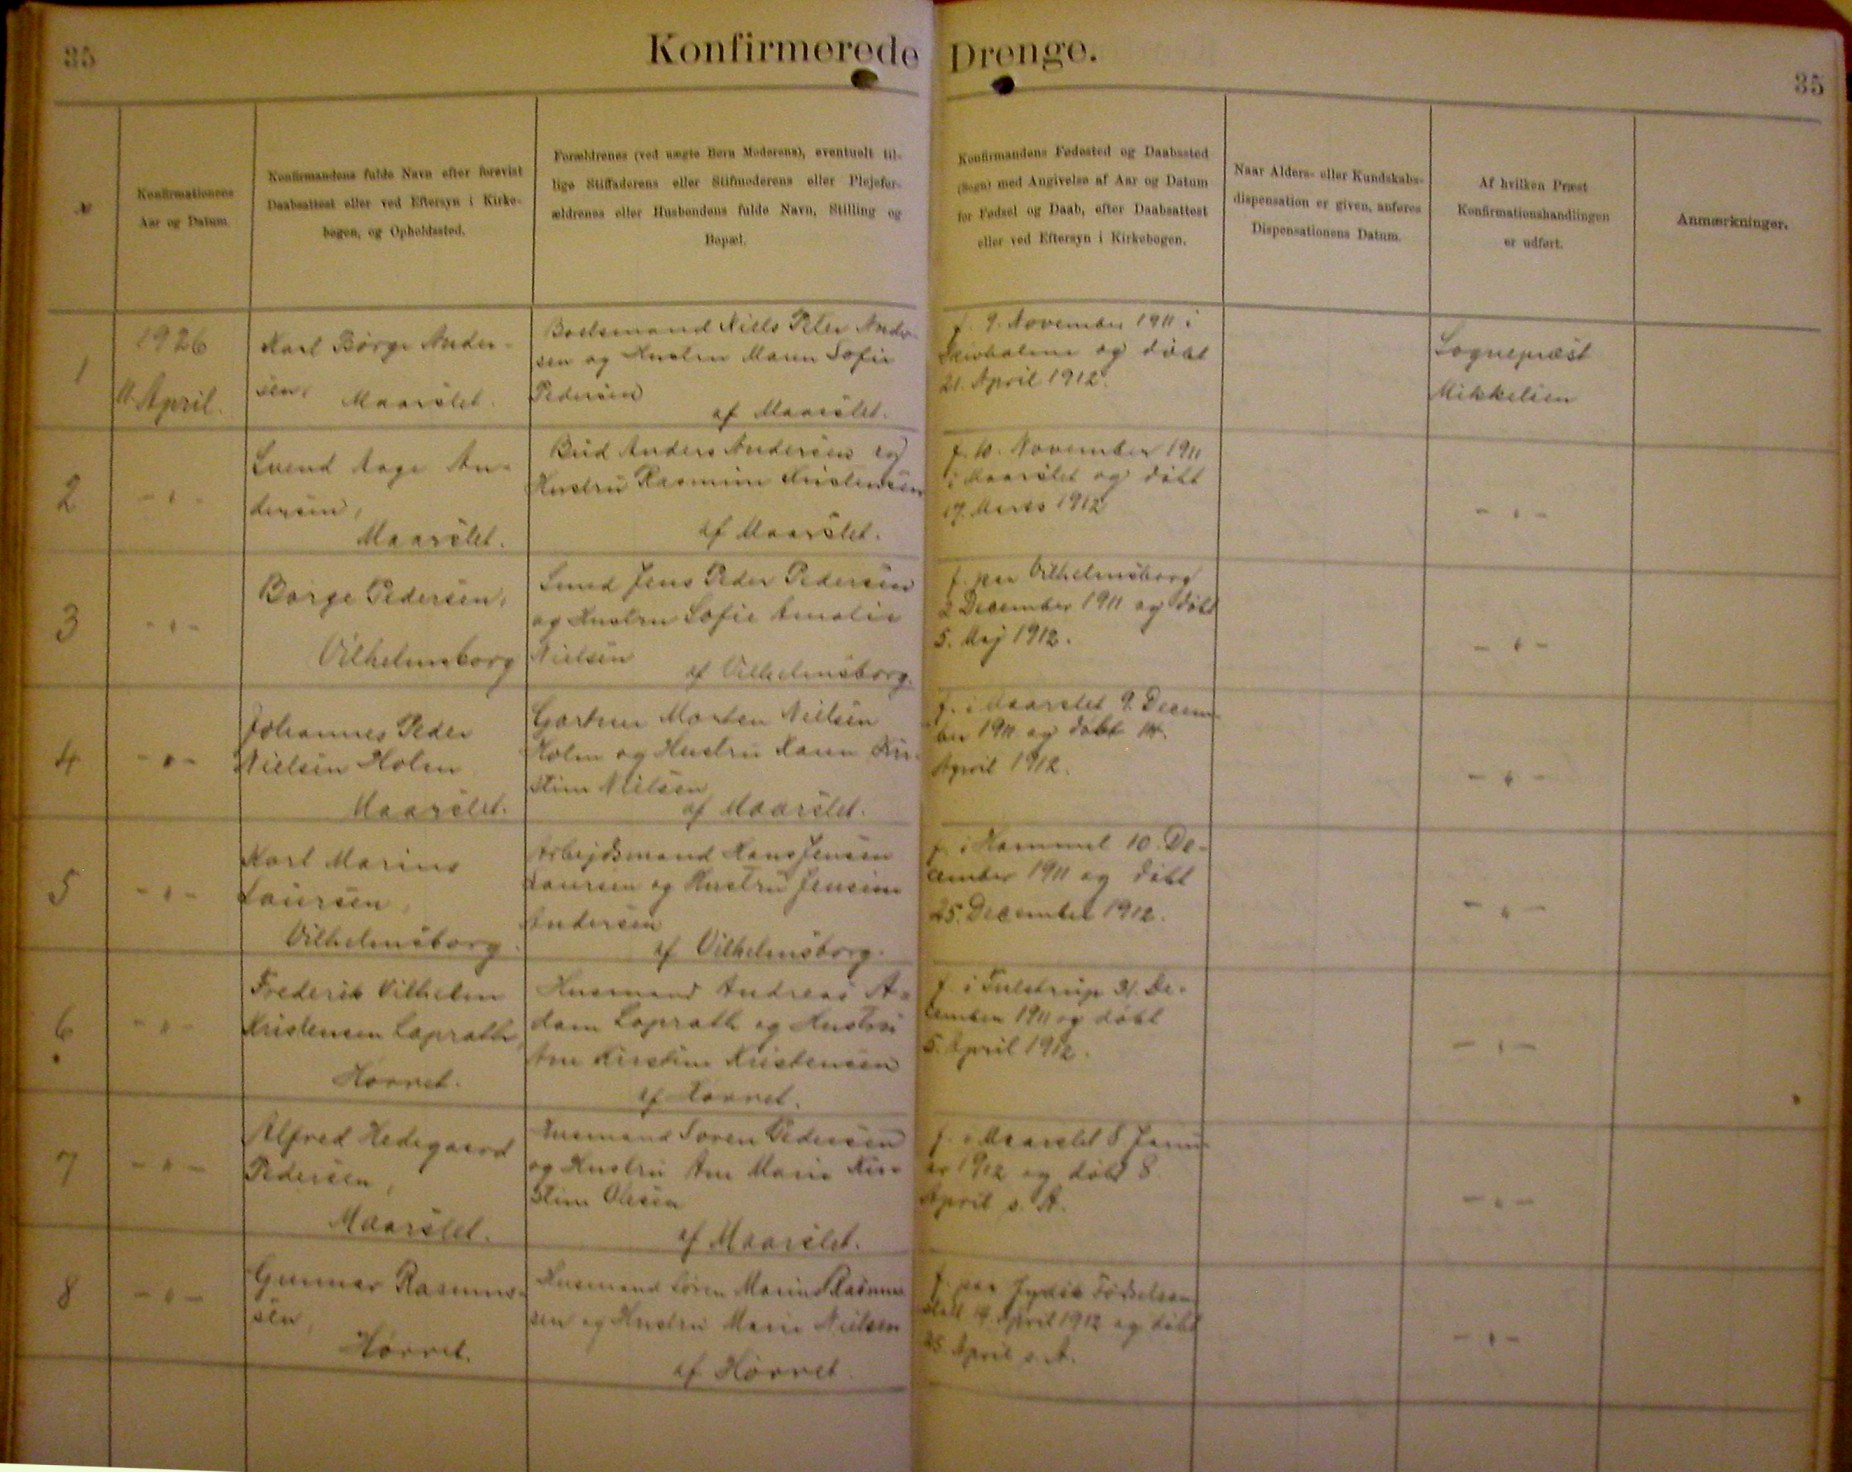 35
Konfirmerede Drenge.
35
№
Konfirmationens
Aar og Datum.
Konfirmandens fulde Navn efter forevist
Daabsattest eller ved Eftersyn i Kirke-
bogen, og Opholdssted.
Forældrenes (ved uægte Børn Moderens), eventuelt til-
lige Stiffaderens eller Stifmoderens eller Plejefor-
ældrenes eller Husbondens fulde Navn, Stilling og
Bopæl.
Konfirmandens Fødested og Daabssted
(Sogn) med Angivelse af Aar og Datum
for Fødsel og Daab, efter Daabsattest
eller ved Eftersyn i Kirkebogen.
Naar Alders- eller Kundskabs-
dispensation er given, anføres
Dispensationens Datum.
Af hvilken Præst
Konfirmationshandlingen
er udført.
Anmærkninger.
1
1926
11. April.
Karl Børge Ander-
sen,
Maarslet.
Boelsmand Niels Peter Ander-
sen og Hustru Maren Sofie
Pedersen
af Maarslet.
f. 9. November 1911 i
og døbt
21. April 1912.
Sognepræst
Mikkelsen
2
- " -
Svend Aage An-
dersen,
Maarslet.
Bud Anders Andersen og
Hustru Rasmine Kristensen
af Maarslet.
f. 10. November 1911
i Maarslet og døbt
17. Marts 1912
- " -
3
- " -
Børge Pedersen,
Vilhelmsborg
Smed Jens Peder Pedersen
og Hustru Sofie Amalie
Nielsen
af Vilhelmsborg.
f. paa Vilhelmsborg
2 December 1911 og døbt
5. Maj 1912.
- " -
4
- " -
Johannes Peder
Nielsen Holm
Maarslet.
Gartner Morten Nielsen
Holm og Hustru Karen Kri-
stine Nielsen
af Maarslet.
f. i Maarslet 9. Decem-
ber 1911 og døbt 14.
April 1912.
- " -
5
- " -
Karl Marius
Laursen,
Vilhelmsborg.
Arbejdsmand Hans Jensen
Laursen og Hustru Jensine
Andersen
af Vilhelmsborg.
f. i Hammel 10. De-
cember 1911 og døbt
25. December 1912.
- " -
6
- " -
Frederik Vilhelm
Kristensen Laprath,
Hørret.
Husmand Andreas A-
dam Laprath og Hustru
Ane Kirstine Kristensen
af Hørret.
f. i Tulstrup 31. De-
cember 1911 og døbt
5. April 1912.
- " -
7
- " -
Alfred Hedegaard
Pedersen,
Maarslet.
Husmand Søren Pedersen
og Hustru Ane Marie Kir-
stine Olesen
af Maarslet.
f. i Maarslet 8 Janu-
ar 1912 og døbt 8.
April s. A.
- " -
8
- " -
Gunnar Rasmus-
sen,
Hørret.
Husmand Søren Marius Rasmus-
sen og Hustru Marie Nielsen
af Hørret.
f. paa Jydsk Fødselsan-
stalt 14. April 1912 og døbt
25. April s. A.
- " -